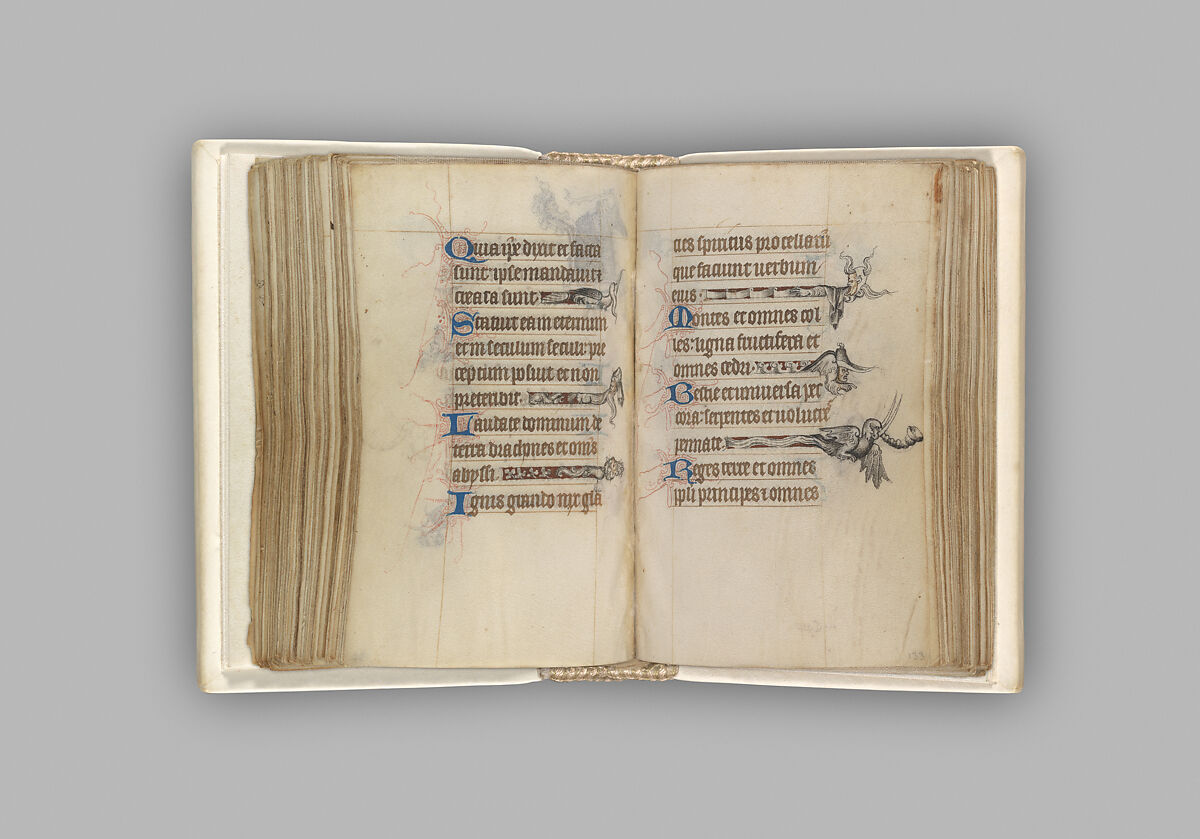 Quia ip̄e dixit et facta
sunt: ipse mandauit ⁊
creata sunt.
Statuit ea in eternum
et in seculum seculi: pre
ceptum posuit et non
preteribit.
Laudate dominum de
terra: dracones et om̄s
abyssi.
Ignis grando nix gla
cies spiritus procellarū
que faciunt uerbum
eius.
Montes et omnes col
les: ligna fructifera et
omnes cedri.
Bestie et uniuersa pec
cora: serpentes et uolucre
pennate.
Reges terre et omnes
ppli principes ⁊ omnes
133